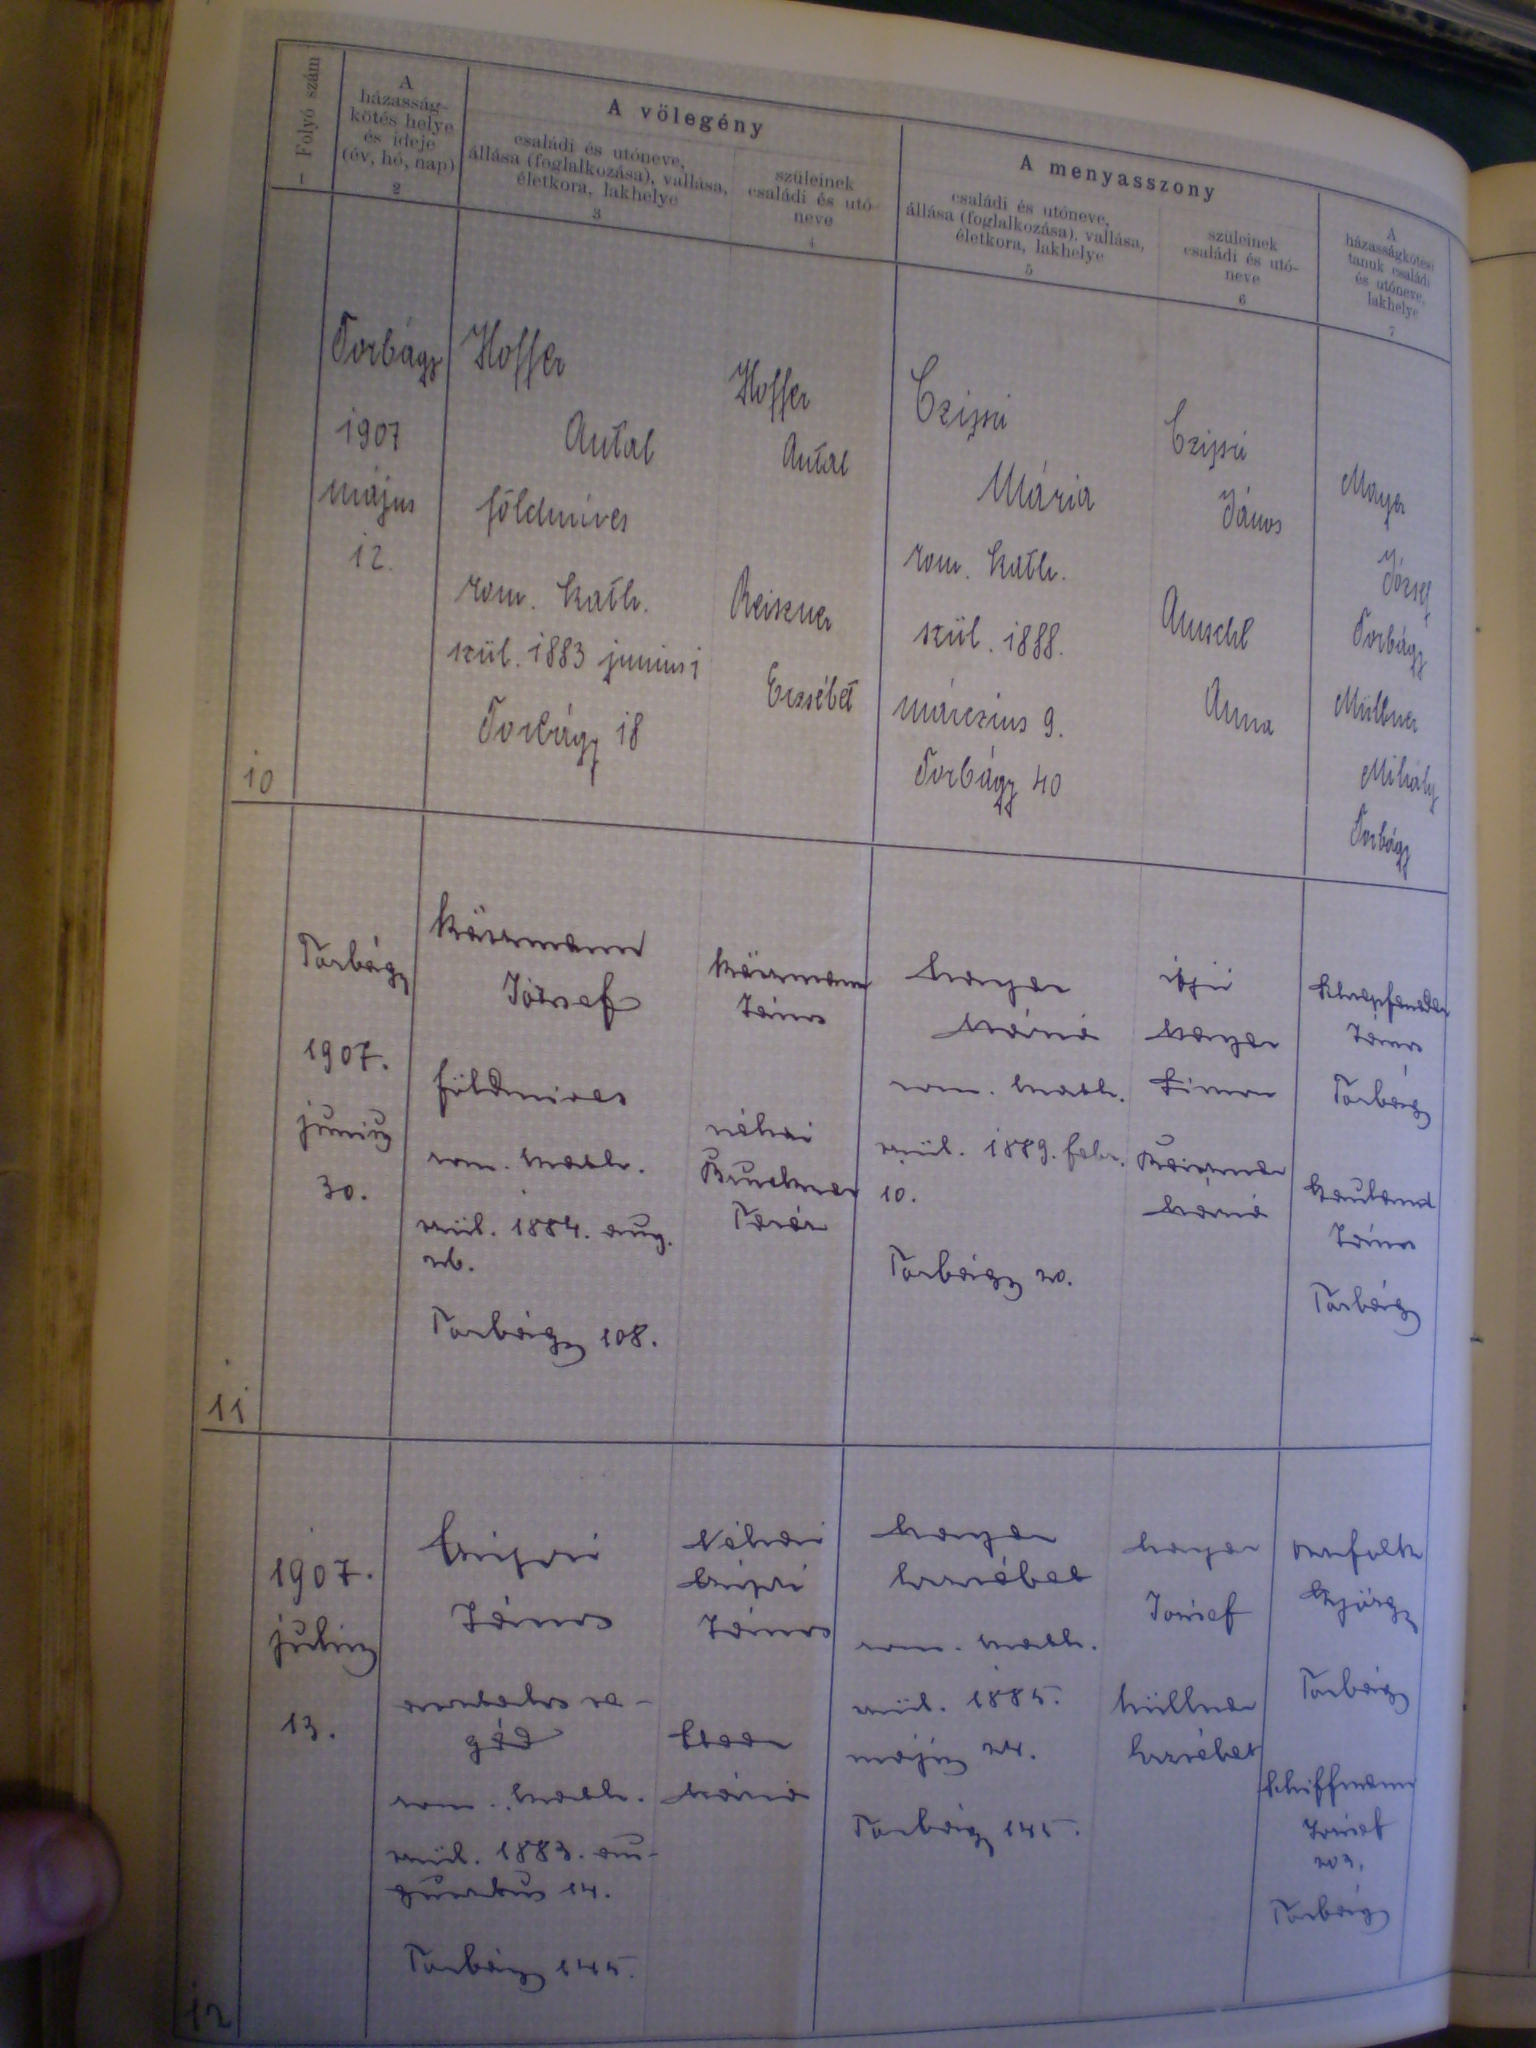 Folyó szám
1
A
házasság-
kötés helye
és ideje
(év, hó, nap)
2
A völegény
családi és utóneve,
állása (foglalkozása), vallása,
életkora, lakhelye
3
szüleinek
családi és utó-
neve
4
A menyasszony
családi és utóneve,
állása (foglalkozása), vallása,
életkora, lakhelye
5
szüleinek
családi és utó-
neve
6
A
házasságkötési
tanuk családi
és utóneve,
lakhelye
7
10
Torbágy
1907
május
12.
Hoffer
Antal
földmíves
rom. kath.
szül. 1883 junius 1
Torbágy 18
Hoffer
Antal
Reiszner
Erzsébet
Czipri
Mária
rom. kath.
szül. 1888.
márczius 9.
Torbágy 40
Czipri
János
Amschl
Anna
Mayer
József
Torbágy
Müllner
Mihály
Torbágy
11
Torbágy
1907.
junius
30.
József
földmives
rom. kath.
szül. 1884. aug.
26.
Torbágy 108.
János
néhai
Bruckner
Teréz
Mayer
Mária
rom. kath.
szül. 1889. febr.
10.
Torbágy 20.
ifjú
Mayer
Simon
Mária
János
Torbágy
János
Torbágy
12
1907.
julius
13.
Czipri
János
asztalos se-
géd
rom. kath.
szül. 1883. au-
gusztus 14.
Torbágy 145.
Néhai
Czipri
János
Mária
Mayer
Erzsébet
rom. kath.
szül. 1885.
május 24.
Torbágy 145.
Mayer
József
Müllner
Erzsébet
György
Torbágy
Schiffmann
József
203.
Torbágy